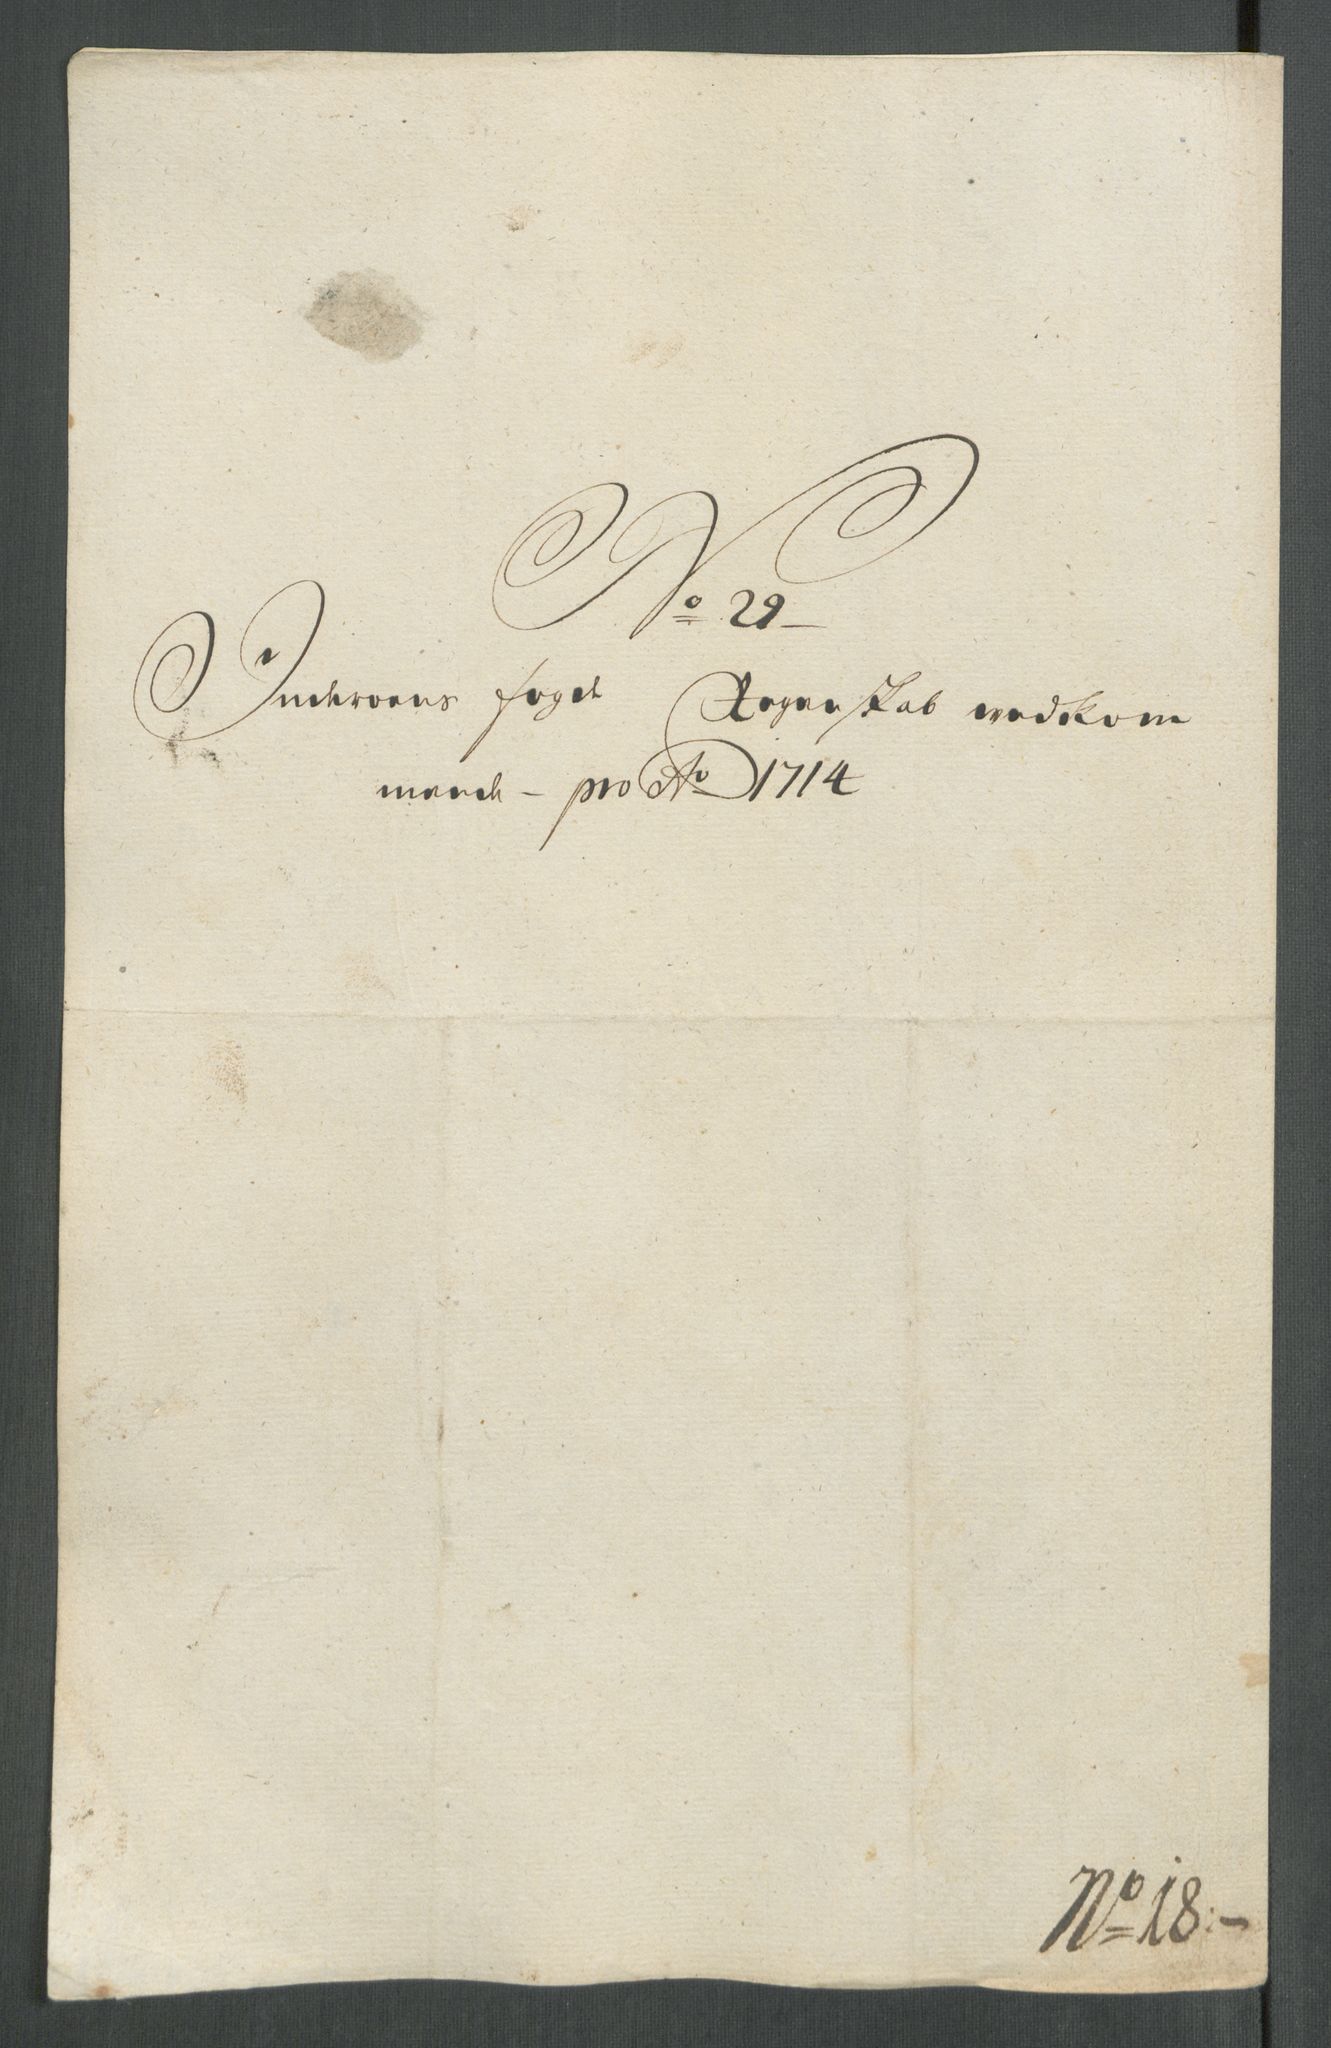 No 29 –
Inderoens fogde Regenskab vedkom
mende – pro Ao 1714
No 18 –